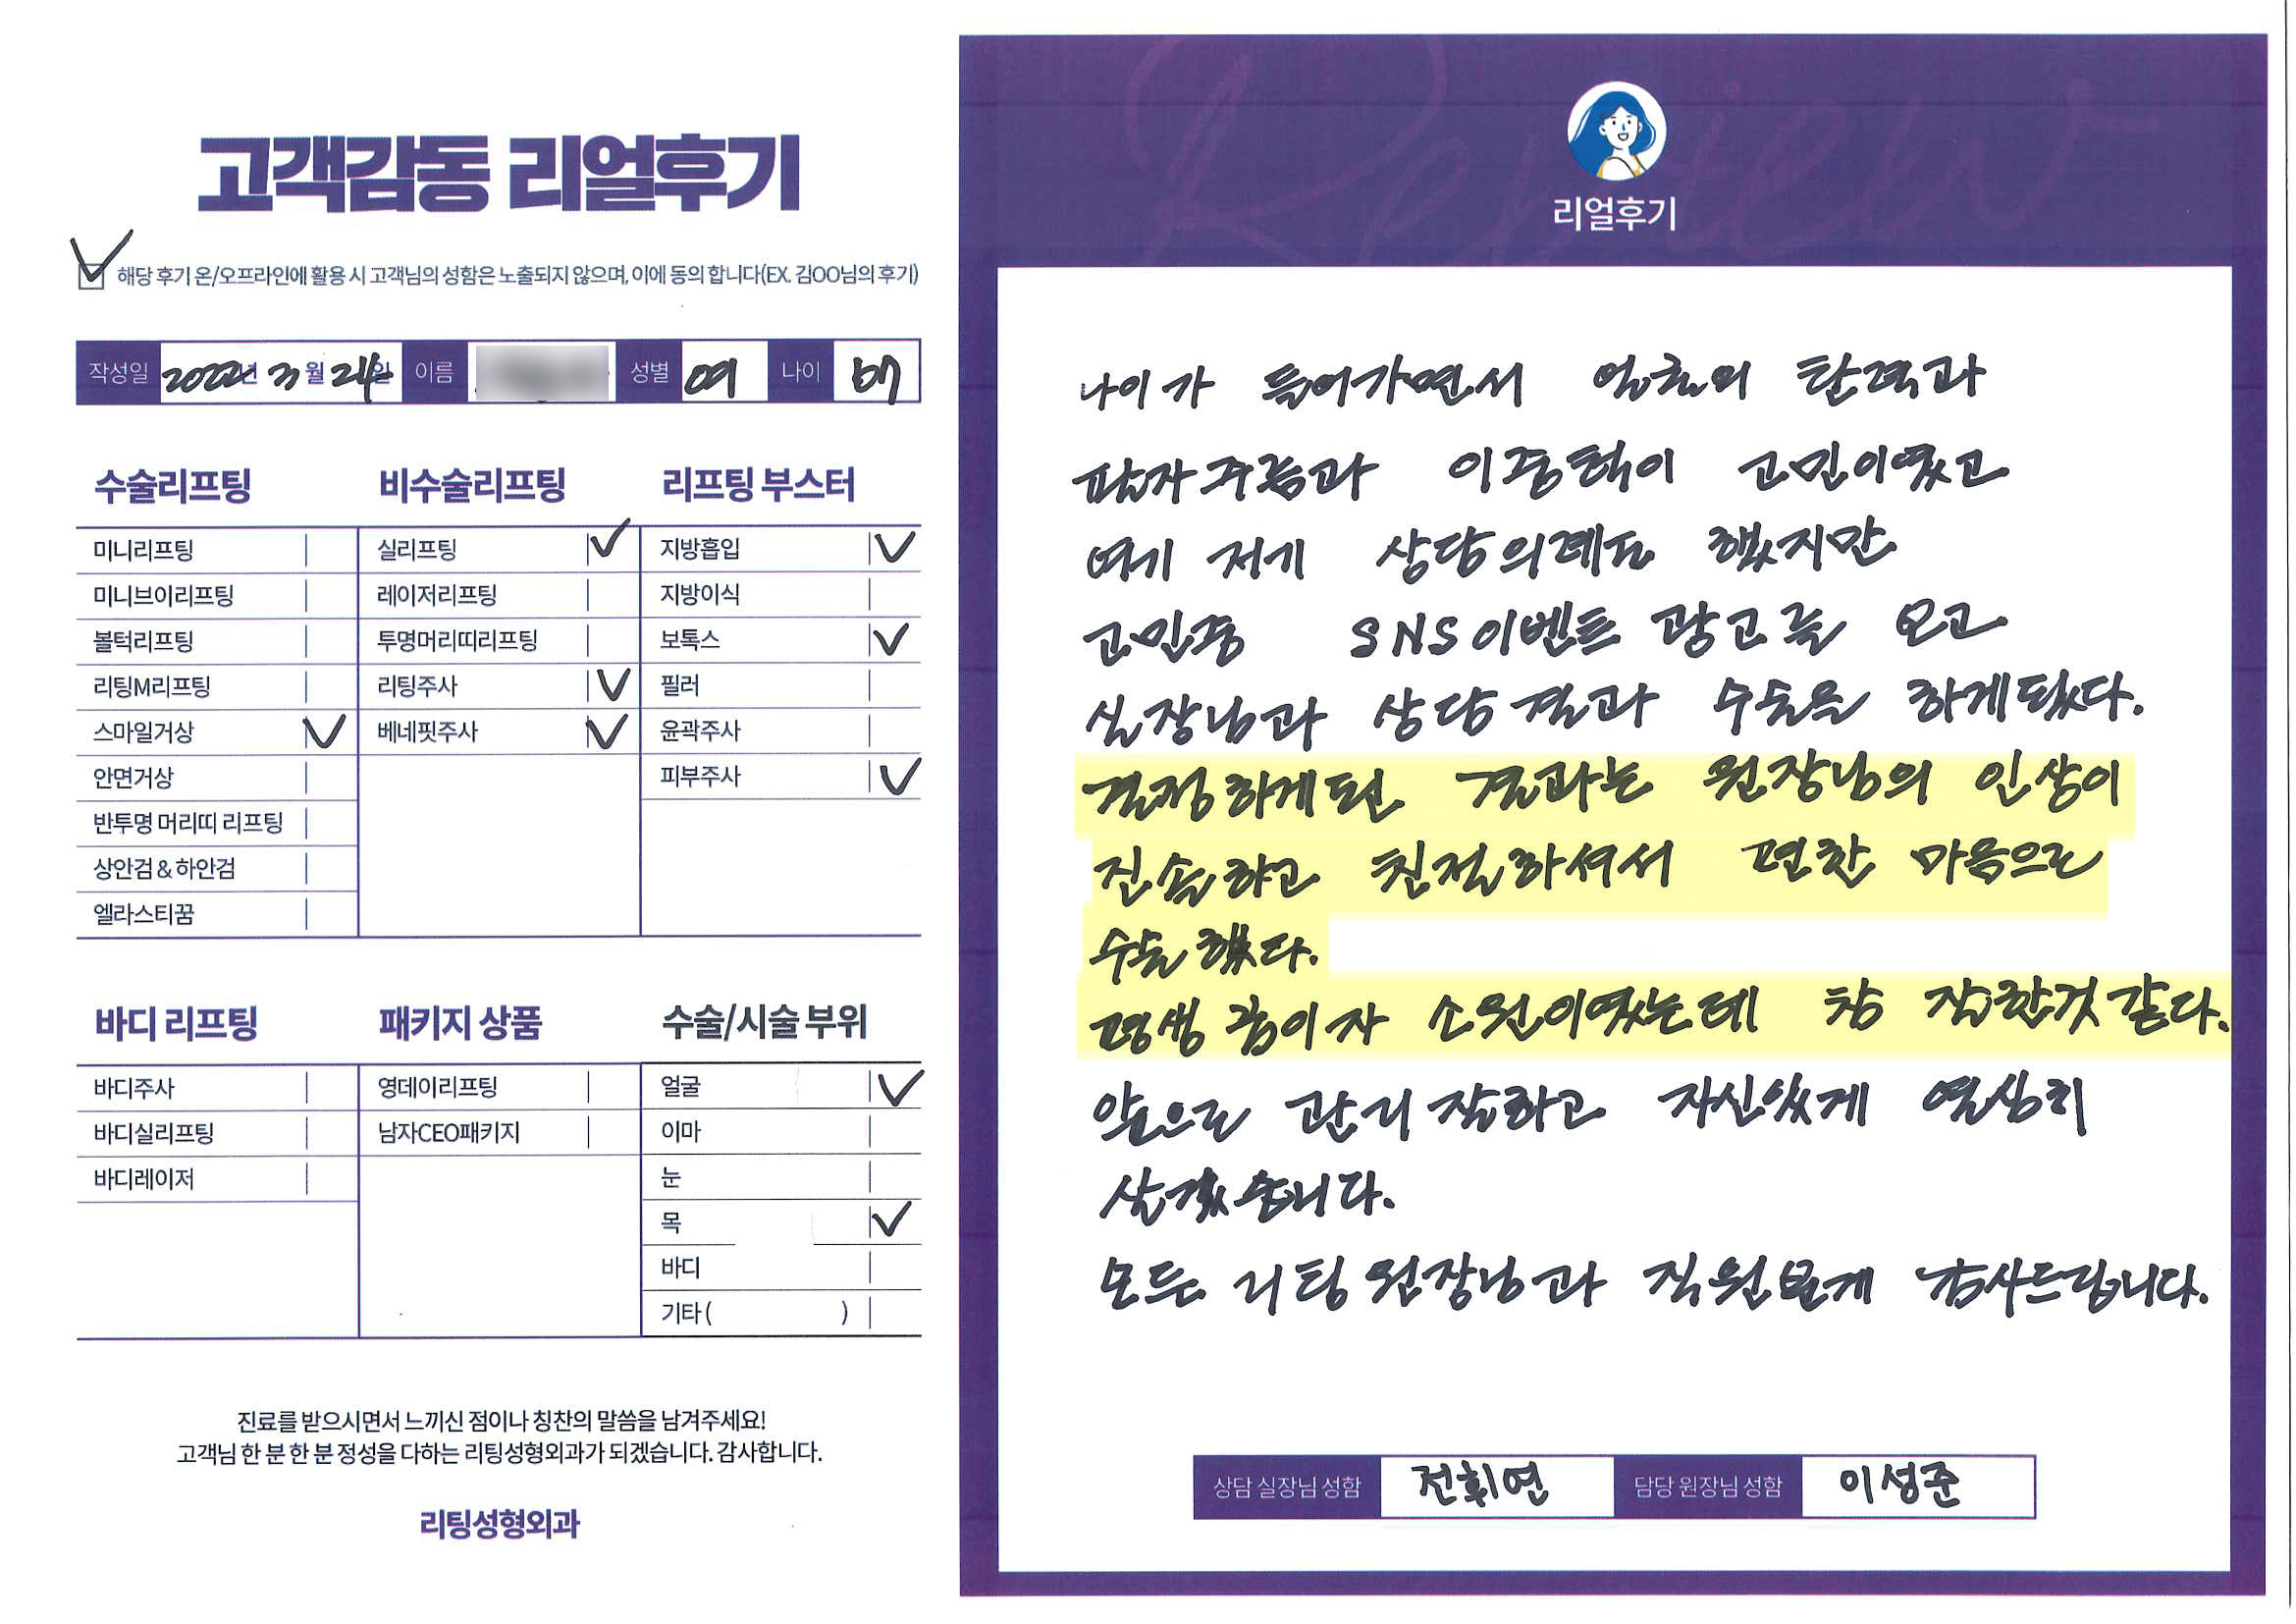 고객감동 리얼후기
해당 후기 온/오프라인에 활용 시 고객님의 성함은 노출되지 않으며, 이에 동의 합니다(EX. 김OO님의 후기)
작성일 2022년 3월 24일 이름 성별 여 나이
수술리프팅
미니리프팅
미니브이리프팅
볼턱리프팅
리팅M리프팅
스마일거상
안면거상
반투명 머리띠 리프팅
상안검 & 하안검
엘라스티꿈
비수술리프팅
실리프팅
레이저리프팅
투명머리띠리프팅
리팅주사
베네핏주사
리프팅 부스터
지방흡입
지방이식
보톡스
필러
윤곽주사
피부주사
바디 리프팅
바디주사
바디실리프팅
바디레이저
패키지 상품
영데이리프팅
남자CEO패키지
수술/시술 부위
얼굴
이마
눈
목
바디
기타 ( )
진료를 받으시면서 느끼신 점이나 칭찬의 말씀을 남겨주세요!
고객님 한 분 한 분 정성을 다하는 리팅성형외과가 되겠습니다. 감사합니다.
리팅성형외과
Review
리얼후기
나이가 들어가면서 얼굴의 탄력과
팔자주름과 이중턱이 고민이였고
여기 저기 상담의뢰도 했지만
고민중 SNS이벤트 광고를 보고
실장님과 상담결과 수술을 하게됐다.
결정하게된 결과는 원장님의 인상이
진솔하고 친절하셔서 편한 마음으로
수술했다.
평생 꿈이자 소원이였는데 참 잘한것 같다.
앞으로 관리 잘하고 자신있게 열심히
살겠습니다.
모든 리팅 원장님과 직원분께 감사드립니다.
상담 실장님 성함 전휘연 담당 원장님 성함 이성준